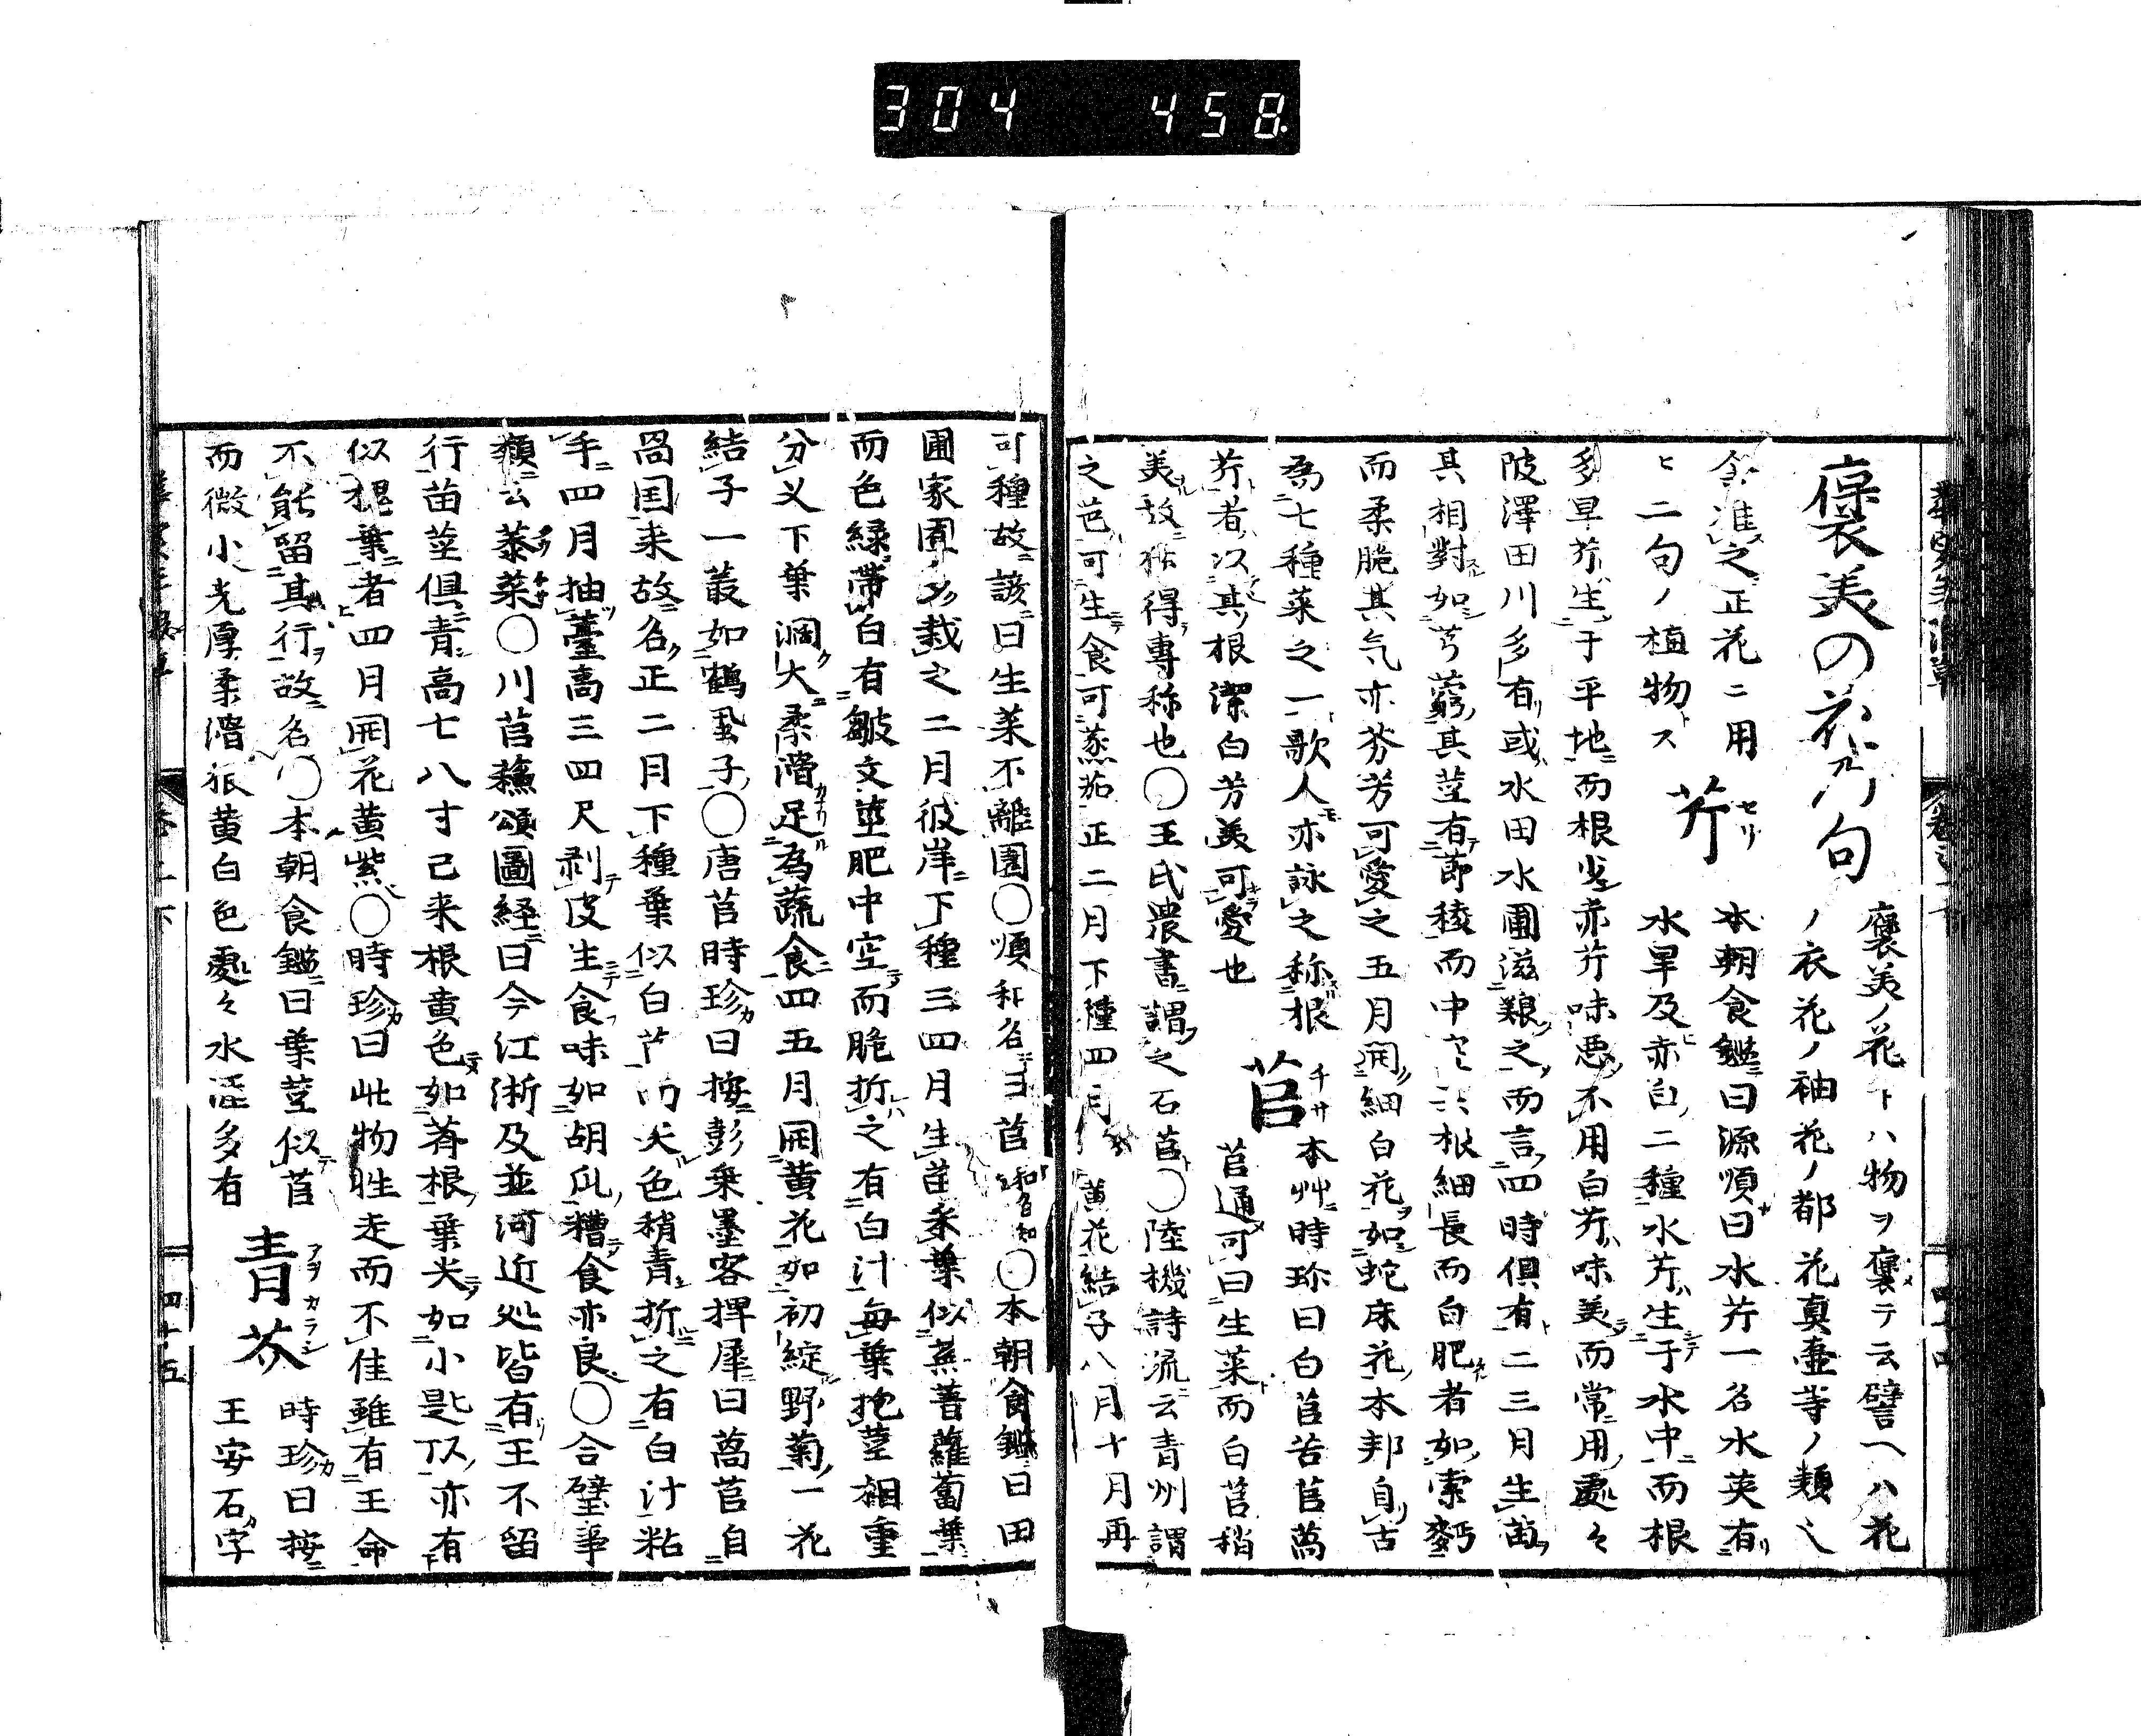 304 458
褒美の花ノ句
褒美ノ花トハ物ヲ褒テ云譬ヘハ花
ノ衣花ノ袖花ノ都花真壷等ノ類
准之正花ニ用
ヒ二句ノ植物トス
芹 セリ
本朝食鑑曰源順曰水芹一名水英有
水旱及赤白二種水芹生于水中而根
多旱芹生于平地而根少赤芹味悪不用白芹味美而常用処々
陂沢田川多有或水田水圃滋
之而言四時倶有二三月生苗
其相対如芎藭其茎有節稜而中空其根細長而白肥者如索麪
而柔脆其気亦芬芳可愛之五月開細白花如蛇床花本邦自古
為七種菜之一歌人亦詠之称根
芹者以其根潔白芳美可愛也
苣 チサ
本艸時珍曰白苣苦苣萵
苣通可曰生菜而白苣稍
美故独得専称也〇王氏農書謂之石苣〇陸機詩流云青州謂
之芑可生食可蒸茹正二月下種四月 黄花結子八月十月再
可種故諺曰生菜不離園〇順和名曰苣和名知〇本朝食鑑曰田
圃家園多栽之二月彼岸下種三四月生苗柔葉似蕪菁蘿蔔葉
而色緑帯白有皺文茎肥中空而脆折之有白汁毎葉抱茎相重
分乂下葉濶大柔滑足為蔬食四五月開黄花如初綻野菊一花
結子一叢如鶴虱子〇唐苣時珍曰按彭乗墨客揮犀曰萵苣自
咼国来故名正二月下種葉似白苣而尖色稍青折之有白汁粘
手四月抽薹高三四尺剥皮生食味如胡瓜糟食亦良〇合璧事
類云
〇川苣蘓頌図経曰今江浙及並河近処皆有王不留
行苗茎倶青高七八寸已来根黄色如薺根葉尖如小匙頭亦有
似槐葉者四月開花黄紫〇時珍曰此物性走而不住雖有王命
不能留其行故名〇本朝食鑑曰葉茎似苣
而微小光厚柔滑根黄白色処々水涯多有
青芥 アヲカラシ
時珍曰按
王安石字
四十五